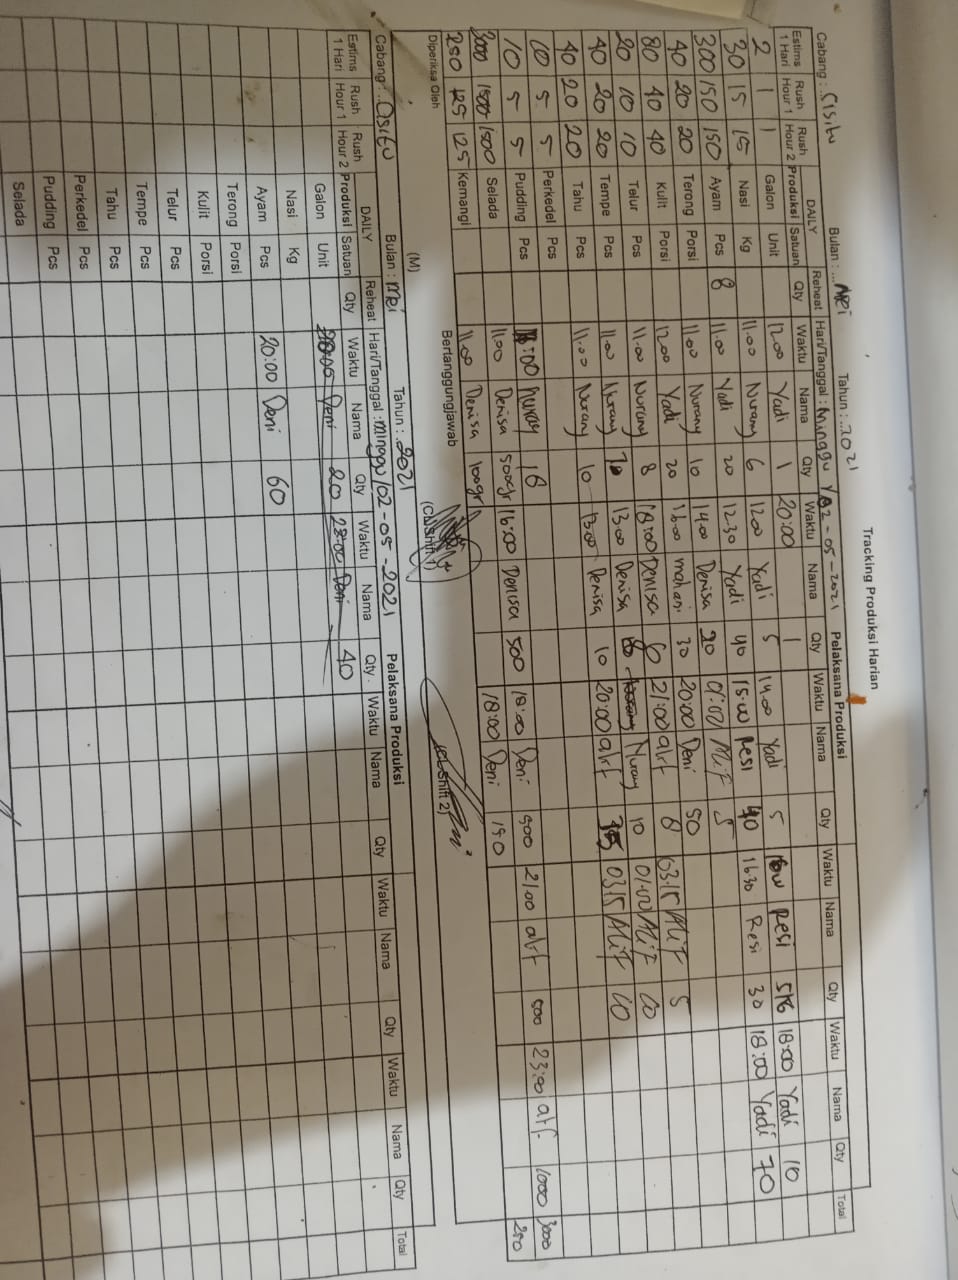 Tracking Produksi Harian
Cabang : Cisitu Bulan : Mei Tahun : 2021 Pelaksana Produksi
Estims 1 Hari Rush Hour 1 Rush Hour 2 DAILY Produksi Satuan Reheat Qty Hari/Tanggal : Minggu / 02-05-2021
Waktu Nama Qty Waktu Nama Qty Waktu Nama Qty Waktu Nama Qty Waktu Nama Qty Total
2 1 1 Galon Unit 12.00 Yadi 1 20:00 1
30 15 15 Nasi Kg 11.00 Nurany 6 12.00 Yadi 5 14.00 Yadi 5 Resi 18:00 Yadi 10
300 150 150 Ayam Pcs 8 11.00 Yadi 20 12.30 Yadi 40 15:00 Resi 40 16.30 Resi 30 18:00 Yadi 70
40 20 20 Terong Porsi 11.00 Nurany 10 14.00 Denisa 20 01:00 Alif 5
80 40 40 Kulit Porsi 12.00 Yadi 20 16.00 30 20:00 Deni 50
20 10 10 Telur Pcs 11.00 Nurany 8 18:00 Denisa 6 21:00 arf 8 03.15 Alif 5
40 20 20 Tempe Pcs 11.00 Nurany 13:00 Denisa Nurany 10 01:00 Alif
40 20 20 Tahu Pcs 11.00 Nurany 10 13:00 Denisa 10 20:00 arf 03.15 Alif
10 5 5 Perkedel Pcs
10 5 5 Pudding Pcs Nurany 18
3000 1500 1500 Selada 11.00 Denisa 500gr 16:00 Denisa 500 18:00 Deni 500 21:00 arf 500 23:00 arf 1000 3000
250 125 125 Kemangi 11.00 Denisa 100gr 18:00 Deni 150 250
Diperiksa Oleh (M) Bertanggungjawab (CL Shift 1) (CL Shift 2)
Cabang : Cisitu Bulan : Mei Tahun : 2021 Pelaksana Produksi
Estims 1 Hari Rush Hour 1 Rush Hour 2 DAILY Produksi Satuan Reheat Qty Hari/Tanggal : Minggu / 02-05-2021
Waktu Nama Qty Waktu Nama Qty Waktu Nama Qty Waktu Nama Qty Waktu Nama Qty Total
Galon Unit 20:00 Deni 20 Deni 40
Nasi Kg
Ayam Pcs 20:00 Deni 60
Terong Porsi
Kulit Porsi
Telur Pcs
Tempe Pcs
Tahu Pcs
Perkedel Pcs
Pudding Pcs
Selada